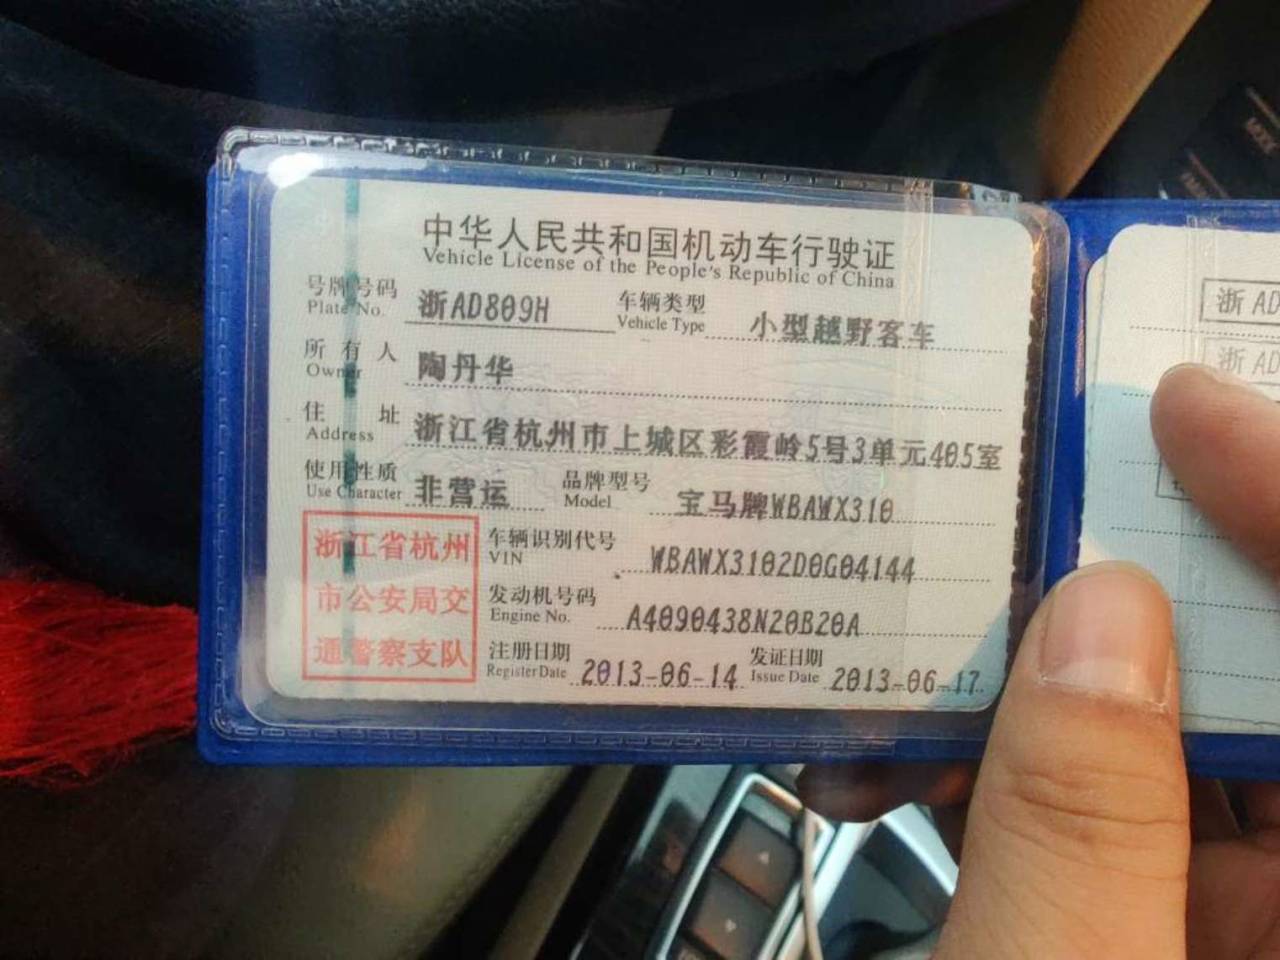 中华人民共和国机动车行驶证
Vehicle License of the People's Republic of China
号牌号码 浙AD809H 车辆类型 小型越野客车
Plate No. Vehicle Type
所有人 陶丹华
Owner
住址 浙江省杭州市上城区彩霞岭5号3单元405室
Address
使用性质 非营运 品牌型号 宝马牌WBAWX310
Use Character Model
浙江省杭州
市公安局交
通警察支队
车辆识别代号 WBAWX3102D0G04144
VIN
发动机号码 A4090438N20B20A
Engine No.
注册日期 2013-06-14 发证日期 2013-06-17
Register Date Issue Date
浙AD
浙AD